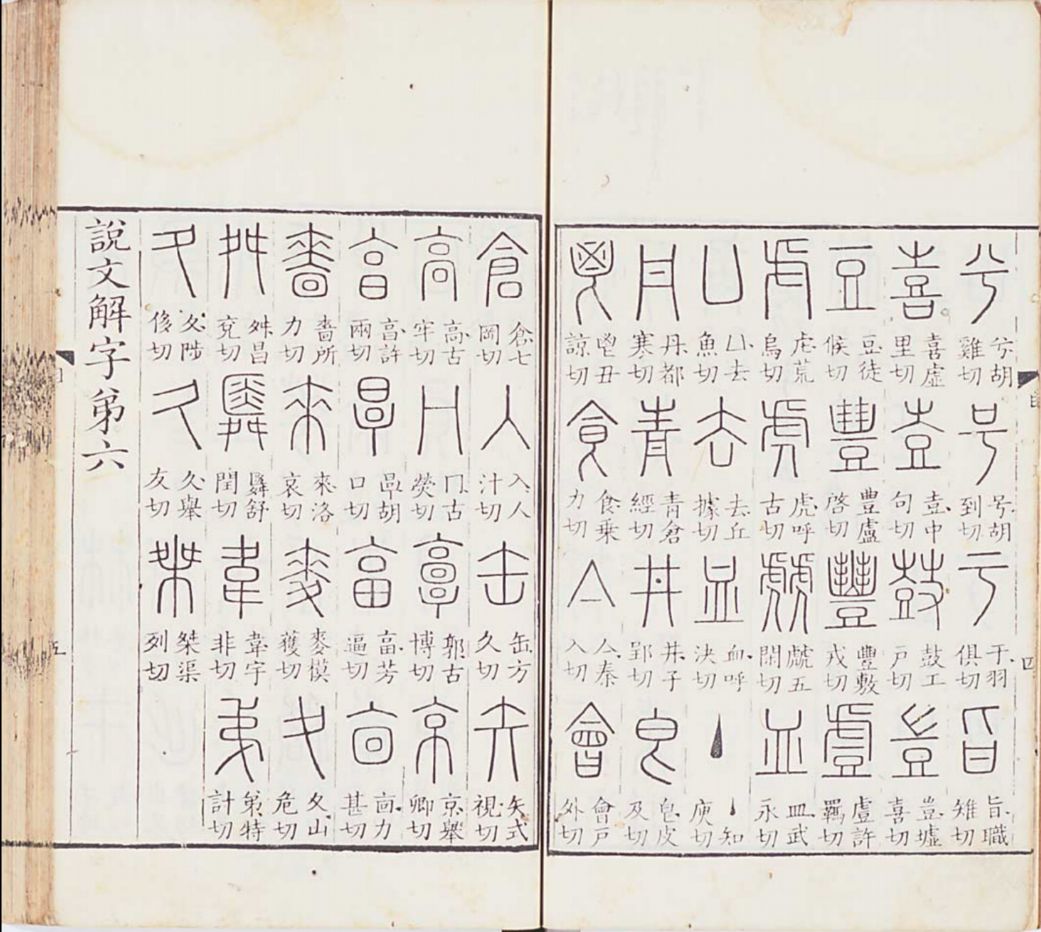 兮 兮胡雞切 号 号胡到切 亏 于羽俱切 旨 旨職雉切
喜 喜虛里切 壴 壴中句切 鼓 鼓工戶切 豈 豈墟喜切
豆 豆徒候切 豊 豊盧啓切 豐 豐敷戎切 䖒 䖒許羈切
虍 虍荒烏切 虎 虎呼古切 虤 虤五閑切 皿 皿武永切
凵 凵去魚切 去 去丘據切 血 血呼決切 丶 丶知庾切
丹 丹都寒切 青 青倉經切 井 井子郢切 皀 皀皮及切
鬯 鬯丑諒切 食 食乗力切 亼 亼秦入切 會 會戶外切
倉 倉七岡切 入 入人汁切 缶 缶方久切 矢 矢式視切
高 高古牢切 冂 冂古熒切 𩫏 郭古博切 京 京舉卿切
亯 亯許兩切 㫗 㫗胡口切 畐 畐芳逼切 㐭 㐭力甚切
嗇 嗇所力切 來 來洛哀切 麥 麥模獲切 夊 夊山危切
舛 舛昌兖切 䑞 䑞舒閏切 韋 韋宇非切 弟 第特計切
夂 夂陟侈切 久 久舉友切 桀 桀渠列切
說文解字第六